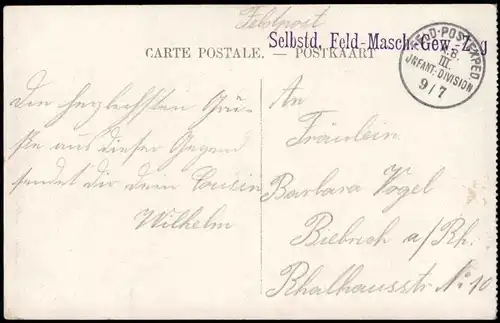 Feldpost
Selbstd. Feld-Masch.-Gew.-Zug
CARTE POSTALE. — POSTKAART
FELD-POSTEXPED
K.B.
III.
INFANT.-DIVISION
9/7
Die herzlichsten Grü-
ße aus dieser Gegend
sendet dir dein Cousin
Wilhelm
An
Fräulein
Barbara Vogel
Biebrich a/Rh.
Rhathausstr No 10